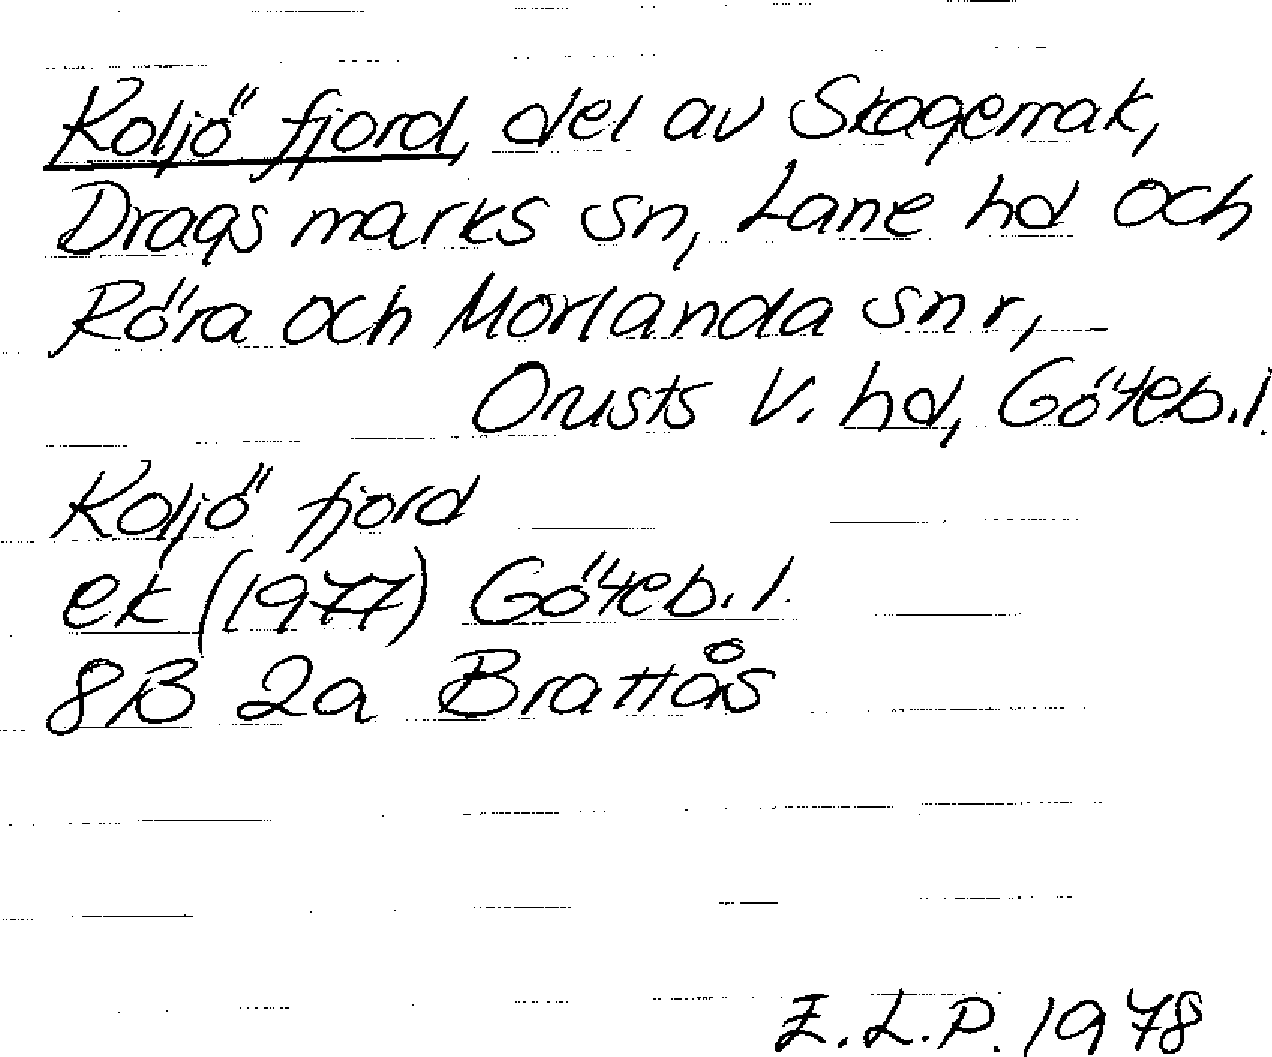 Koljö fjord, del av Skagerrak,
Dragsmarks sn, Lane hd och
Röra och Morlanda snr,
Orusts V. hd, Göteb. l.
Koljö fjord
ek (1977) Göteb. l.
8B 2a Brattås
E.L.P. 1978